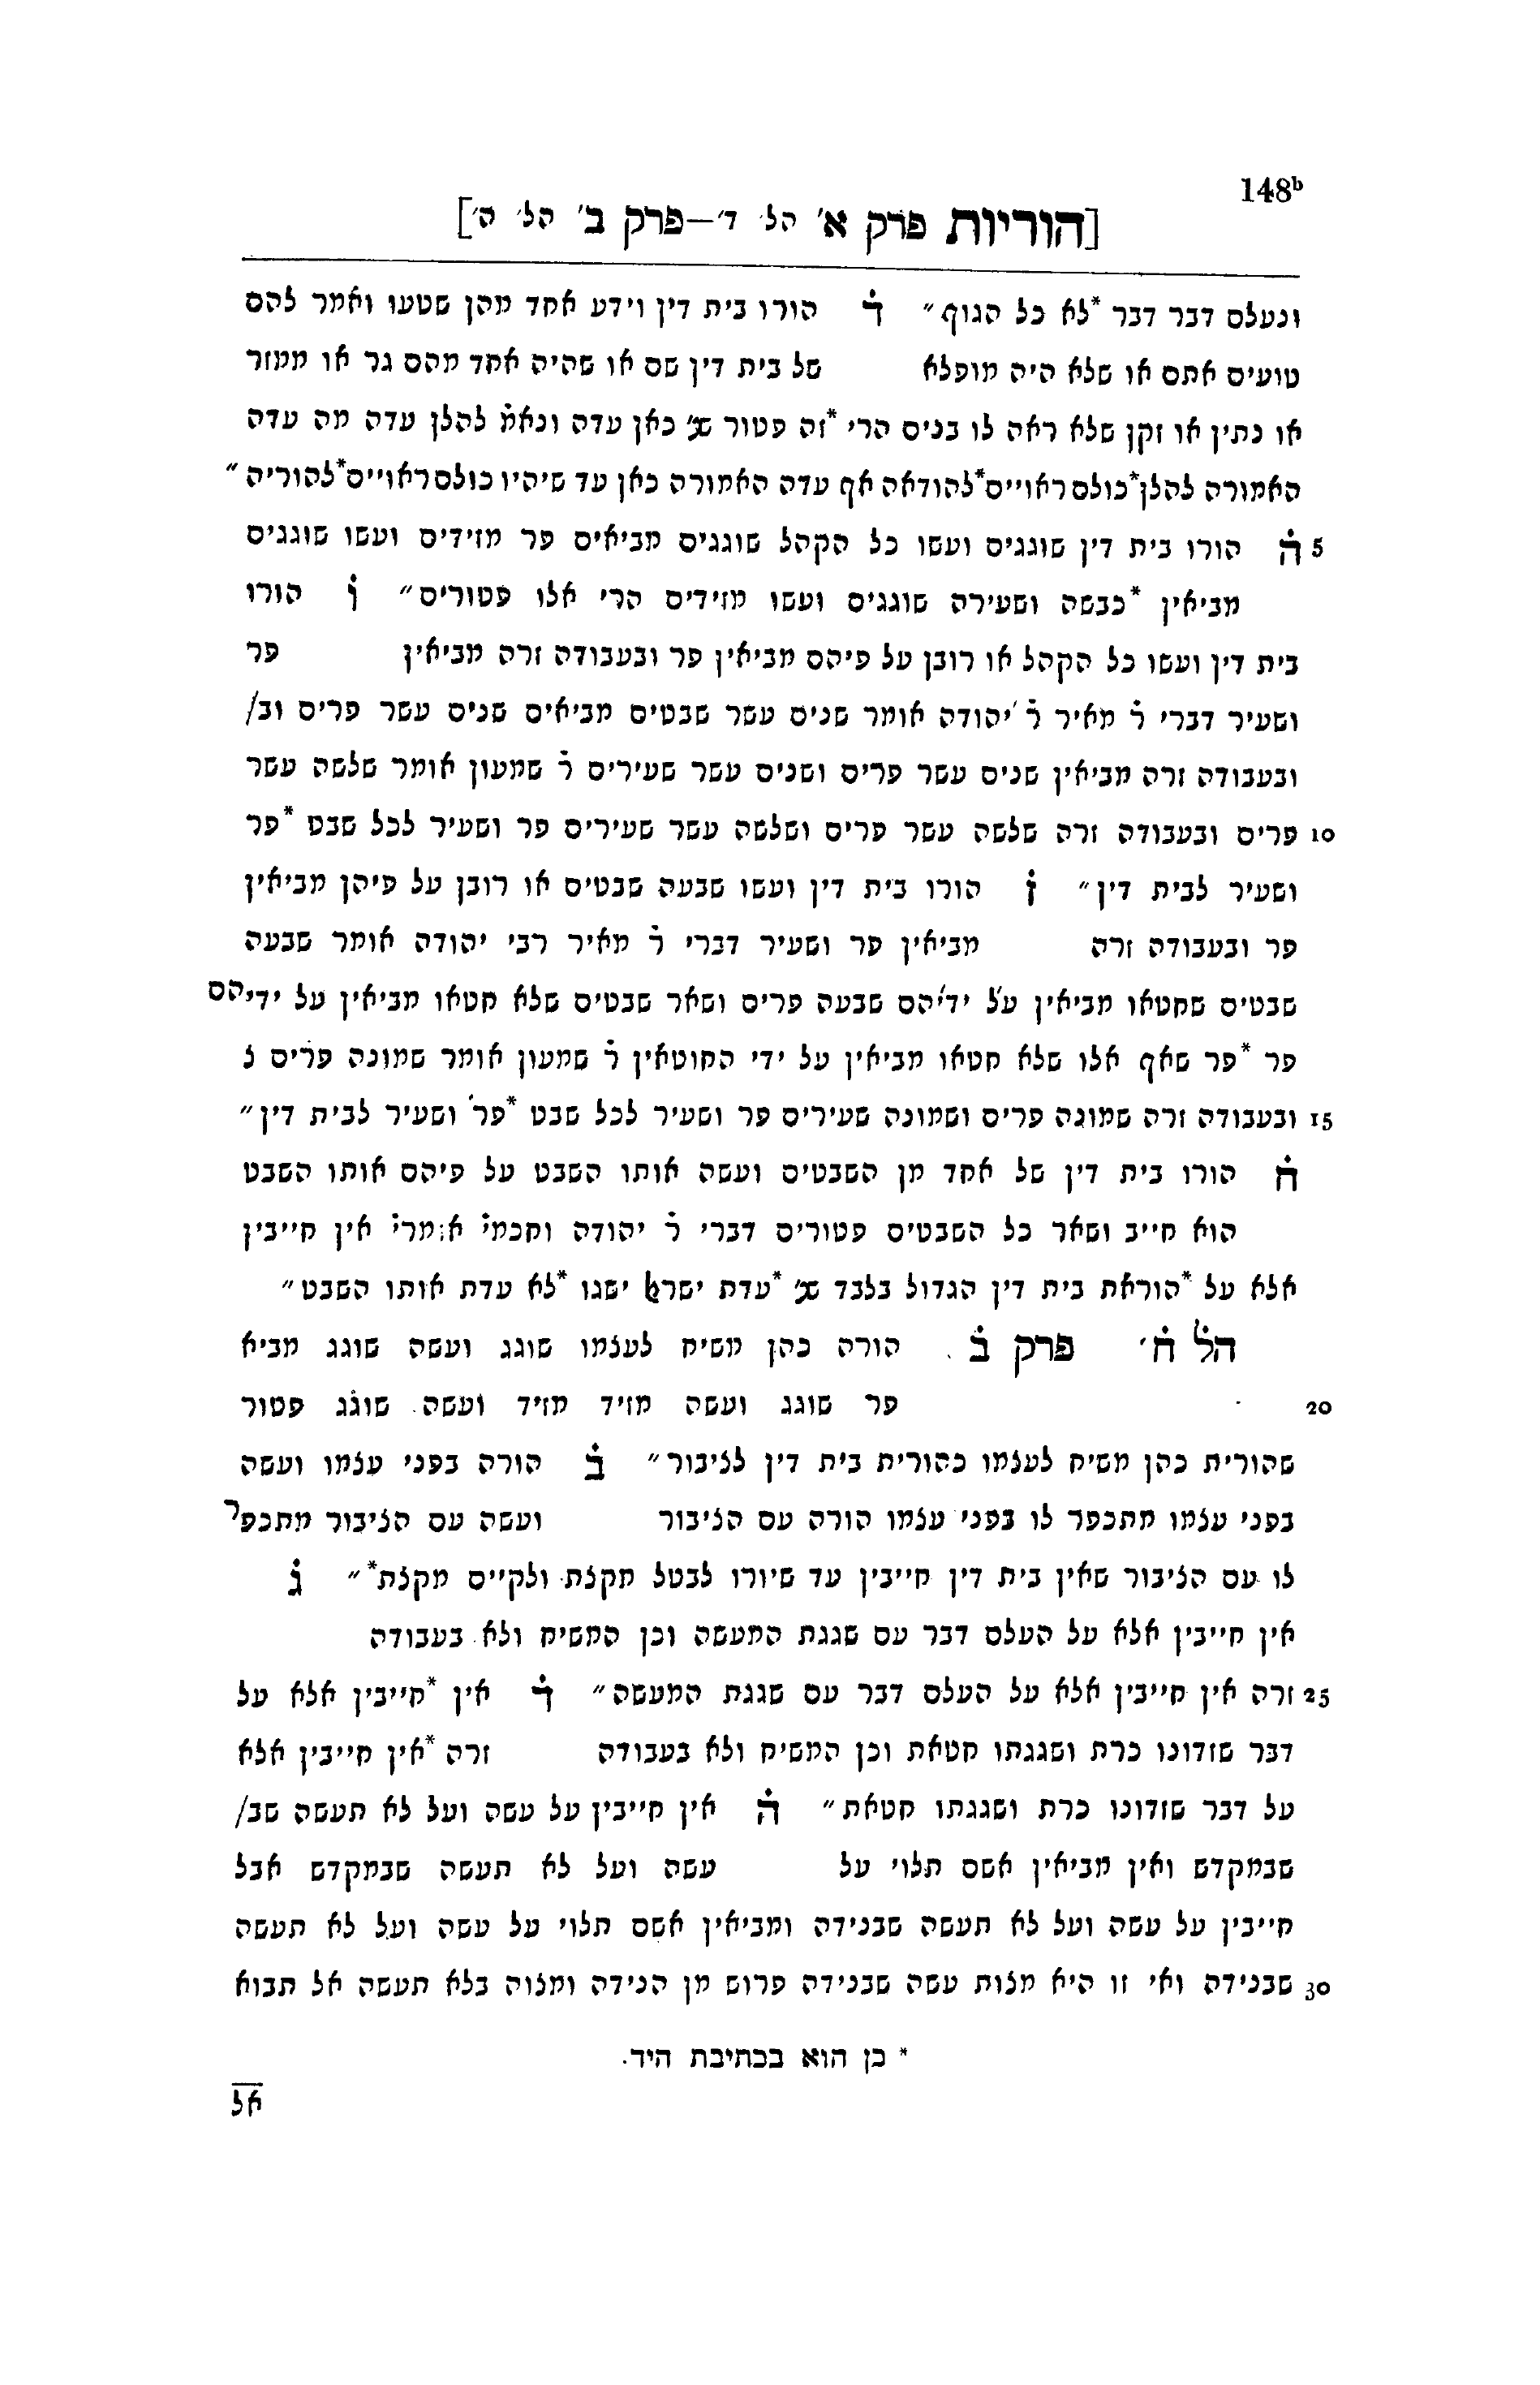 148b
[הוריות פרק א' הל' ד'—פרק ב' הל' ה']
ונעלם דבר דבר *לא כל הגוף״ ד הורו בית דין וידע אחד מהן שטעו ואמר להם
טועים אתם או שלא היה מופלא של בית דין שם או שהיה אחד מהם גר או ממזר
או נתין או זקן שלא ראה לו בנים הרי *זה פטור שנ' כאן עדה ונאמ' להלן עדה מה עדה
האמורה להלן *כולם ראויים *להודאה אף עדה האמורה כאן עד שיהיו כולם ראויים *להוריה״
5 ה הורו בית דין שוגגים ועשו כל הקהל שוגגים מביאים פר מזידים ועשו שוגגים
מביאין *כבשה ושעירה שוגגים ועשו מזידים הרי אלו פטורים״ ו הורו
בית דין ועשו כל הקהל או רובן על פיהם מביאין פר ובעבודה זרה מביאין פר
ושעיר דברי ר' מאיר ר' יהודה אומר שנים עשר שבטים מביאים שנים עשר פרים וב/
ובעבודה זרה מביאין שנים עשר פרים ושנים עשר שעירים ר' שמעון אומר שלשה עשר
10 פרים ובעבודה זרה שלשה עשר פרים ושלשה עשר שעירים פר ושעיר לכל שבט *פר
ושעיר לבית דין״ ז הורו בית דין ועשו שבעה שבטים או רובן על פיהן מביאין
פר ובעבודה זרה מביאין פר ושעיר דברי ר' מאיר רבי יהודה אומר שבעה
שבטים שחטאו מביאין על ידיהם שבעה פרים ושאר שבטים שלא חטאו מביאין על ידיהם
פר *פר שאף אלו שלא חטאו מביאין על ידי החוטאין ר' שמעון אומר שמונה פרים ו
15 ובעבודה זרה שמונה פרים ושמונה שעירים פר ושעיר לכל שבט *פר ושעיר לבית דין״
ח הורו בית דין של אחד מן השבטים ועשה אותו השבט על פיהם אותו השבט
הוא חייב ושאר כל השבטים פטורים דברי ר' יהודה וחכמי' אומרי' אין חייבין
אלא על *הוראת בית דין הגדול בלבד שנ' *עדת ישראל ישגו *לא עדת אותו השבט״
הל' ח' פרק ב הורה כהן משיח לעצמו שוגג ועשה שוגג מביא
20 פר שוגג ועשה מזיד מזיד ועשה שוגג פטור
שהורית כהן משיח לעצמו כהורית בית דין לציבור״ ב הורה בפני עצמו ועשה
בפני עצמו מתכפר לו בפני עצמו הורה עם הציבור ועשה עם הציבור מתכפר
לו עם הציבור שאין בית דין חייבין עד שיורו לבטל מקצת ולקיים מקצת*״ ג
אין חייבין אלא על העלם דבר עם שגגת המעשה וכן המשיח ולא בעבודה
25 זרה אין חייבין אלא על העלם דבר עם שגגת המעשה״ ד אין *חייבין אלא על
דבר שזדונו כרת ושגגתו חטאת וכן המשיח ולא בעבודה זרה *אין חייבין אלא
על דבר שזדונו כרת ושגגתו חטאת״ ה אין חייבין על עשה ועל לא תעשה שב/
שבמקדש ואין מביאין אשם תלוי על עשה ועל לא תעשה שבמקדש אבל
חייבין על עשה ועל לא תעשה שבנידה ומביאין אשם תלוי על עשה ועל לא תעשה
30 שבנידה ואי זו היא מצות עשה שבנידה פרוש מן הנידה ומצוה בלא תעשה אל תבוא
* כן הוא בכתיבת היד.
אל